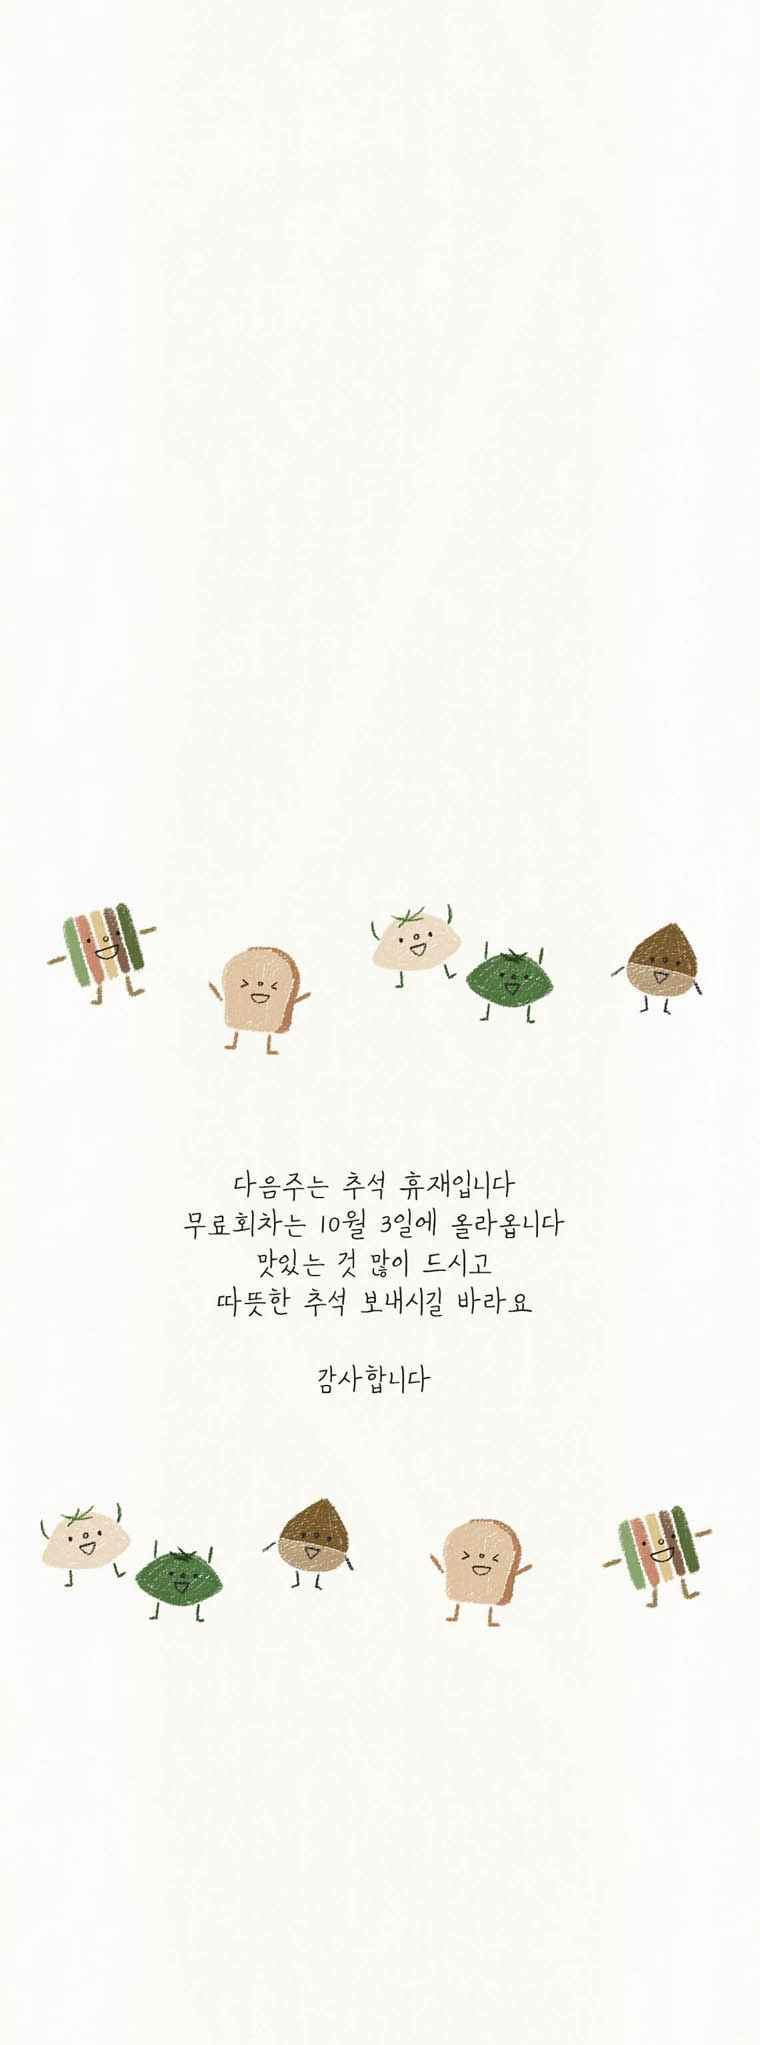 다음주는 추석 휴재입니다
무료회차는 10월 3일에 올라옵니다
맛있는 것 많이 드시고
따뜻한 추석 보내시길 바라요
감사합니다